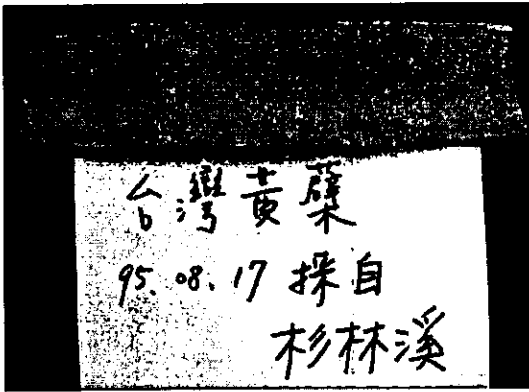 台灣黃蘗
95.08.17 採自
杉林溪